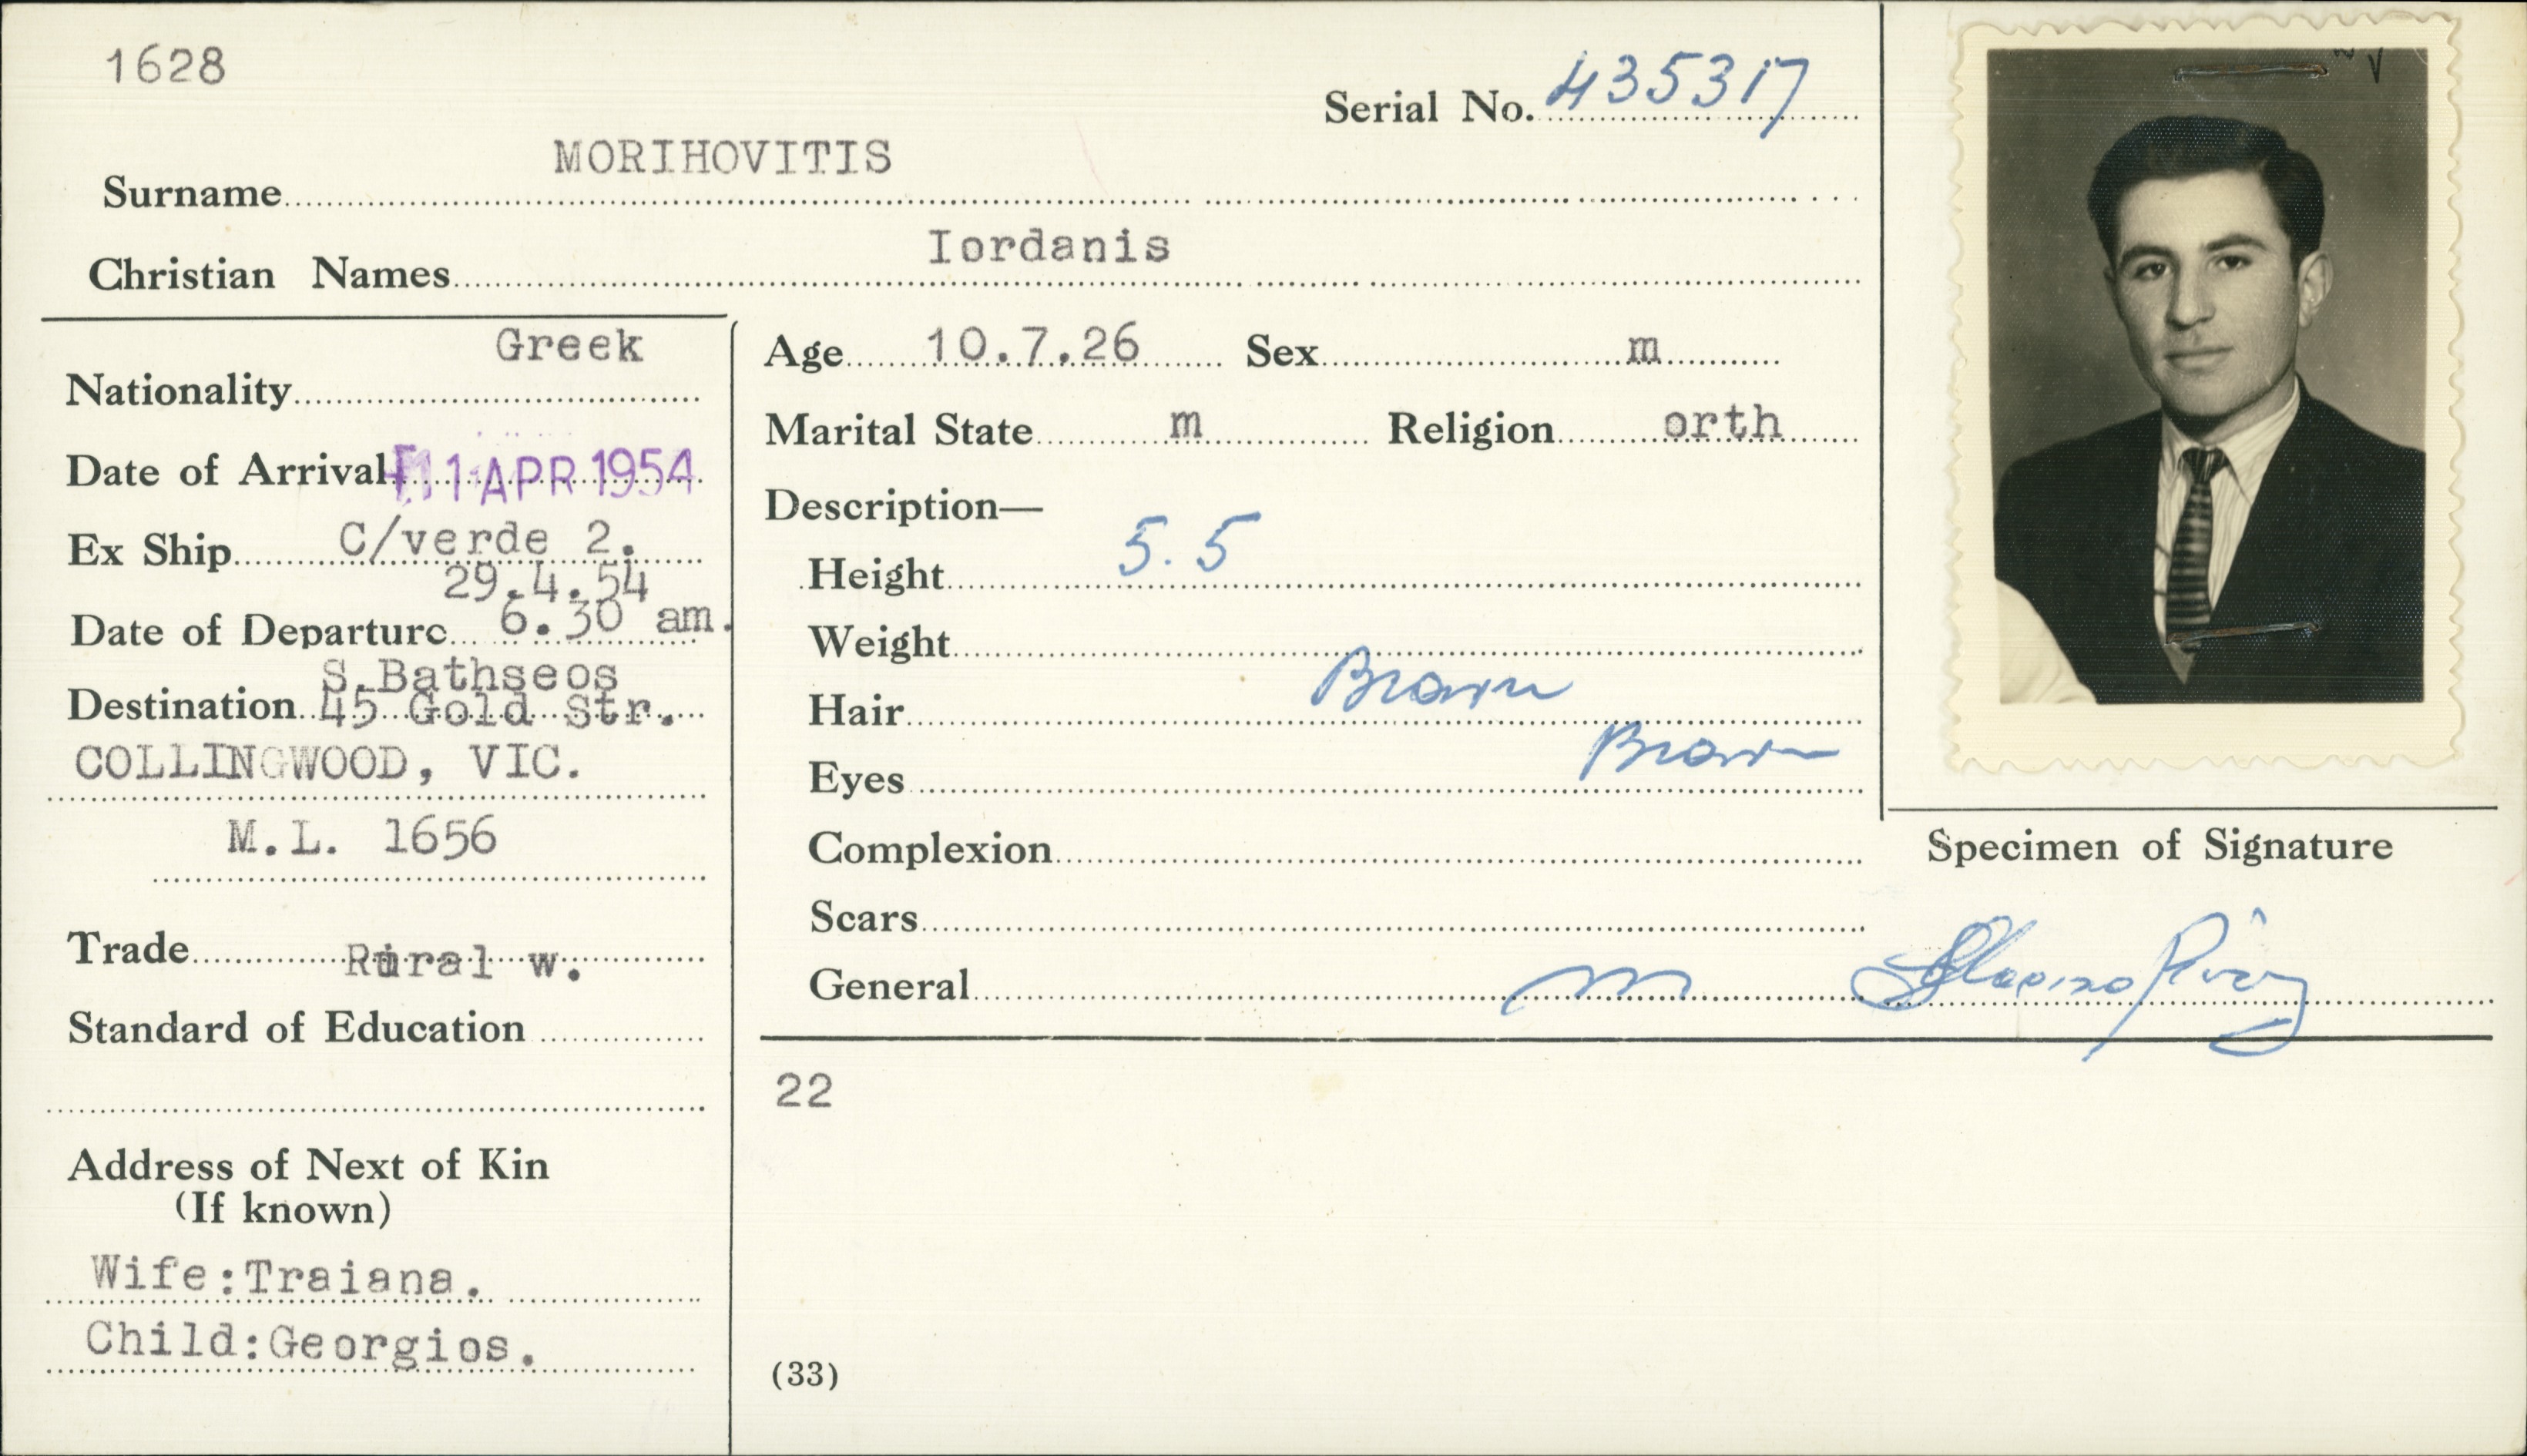 1628
Serial No. 435317
Surname MORIHOVITIS
Christian Names Iordanis
Nationality Greek
Date of Arrival 11 APR 1954
Ex Ship C/verde 2.
29.4.54
Date of Departure 6.30 am.
S.Bathseos
Destination 45 Gold Str.
COLLINGWOOD, VIC.
M.L. 1656
Trade Rural w.
Standard of Education
Address of Next of Kin
(If known)
Wife:Traiana.
Child:Georgios.
Age 10.7.26 Sex m
Marital State m Religion orth
Description—
Height 5.5
Weight
Hair Brown
Eyes Brown
Complexion
Scars
General
22
(33)
Specimen of Signature